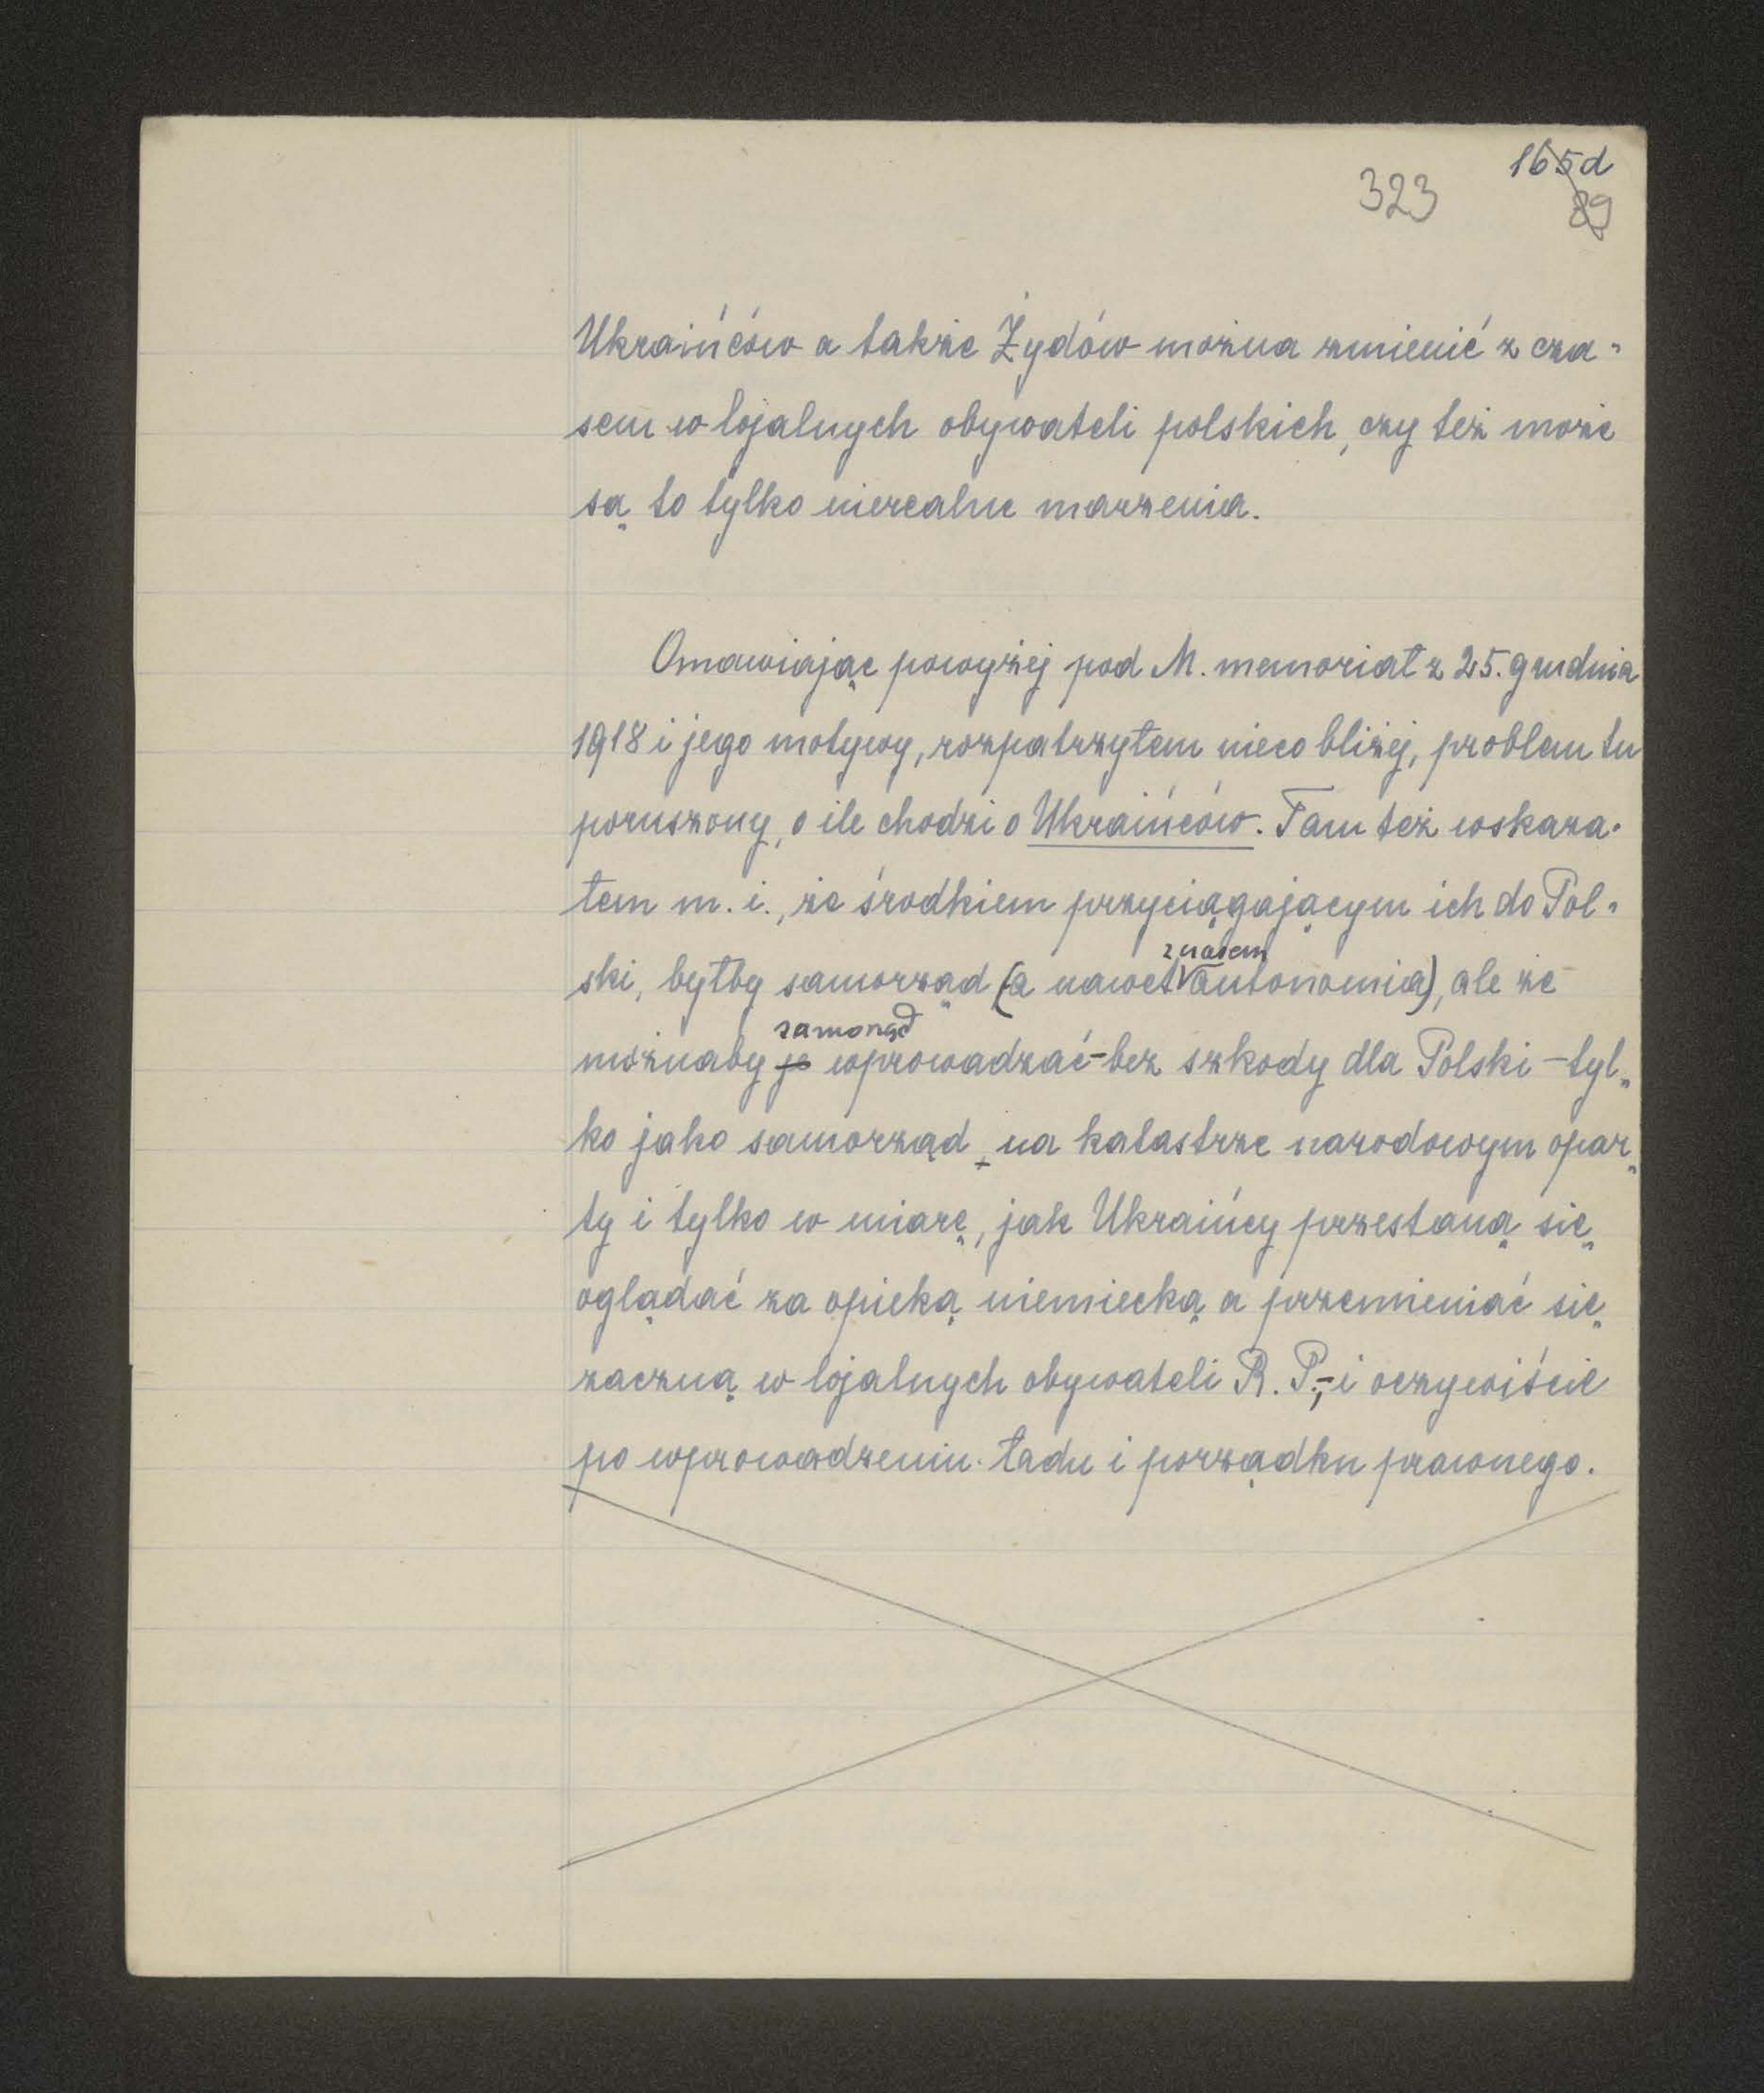 165d
323
89
Ukraińców a także Żydów można zmienić z cza-
sem w lojalnych obywateli polskich, czy też może
są to tylko nierealne marzenia.
Omawiając powyżej pod M. memoriał z 25. grudnia
1918 i jego motywy, rozpatrzyłem nieco bliżej, problem tu
poruszony, o ile chodzi o Ukraińców. Tam też wskaza-
łem m. i., że środkiem przyciągającym ich do Pol-
z czasem
ski, byłby samorząd (a nawet autonomia), ale że
samorząd
możnaby je wprowadzać - bez szkody dla Polski - tyl-
ko jako samorząd, na katastrze narodowym opar-
ty i tylko w miarę, jak Ukraińcy przestaną się
oglądać za opieką niemiecką a przemieniać się
zaczną w lojalnych obywateli R. P.; - i oczywiście
po wprowadzeniu ładu i porządku prawnego.